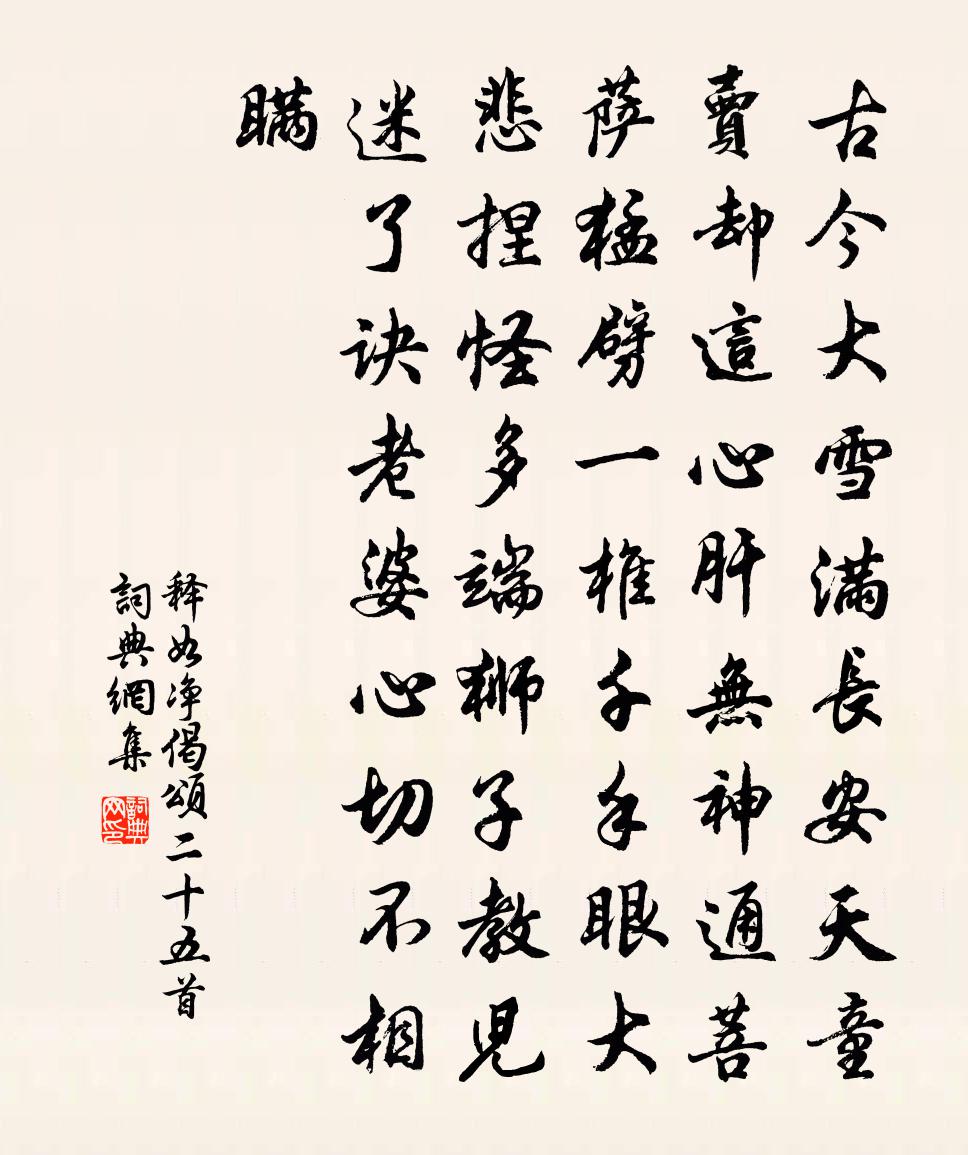 古今大雪满長安天童
賣却這心肝無神通菩
萨猛劈一椎千手眼大
悲捏怪多端狮子教児
迷了诀老婆心切不相
瞒
释如净偈頌二十五首
詞典網集
詞典网印